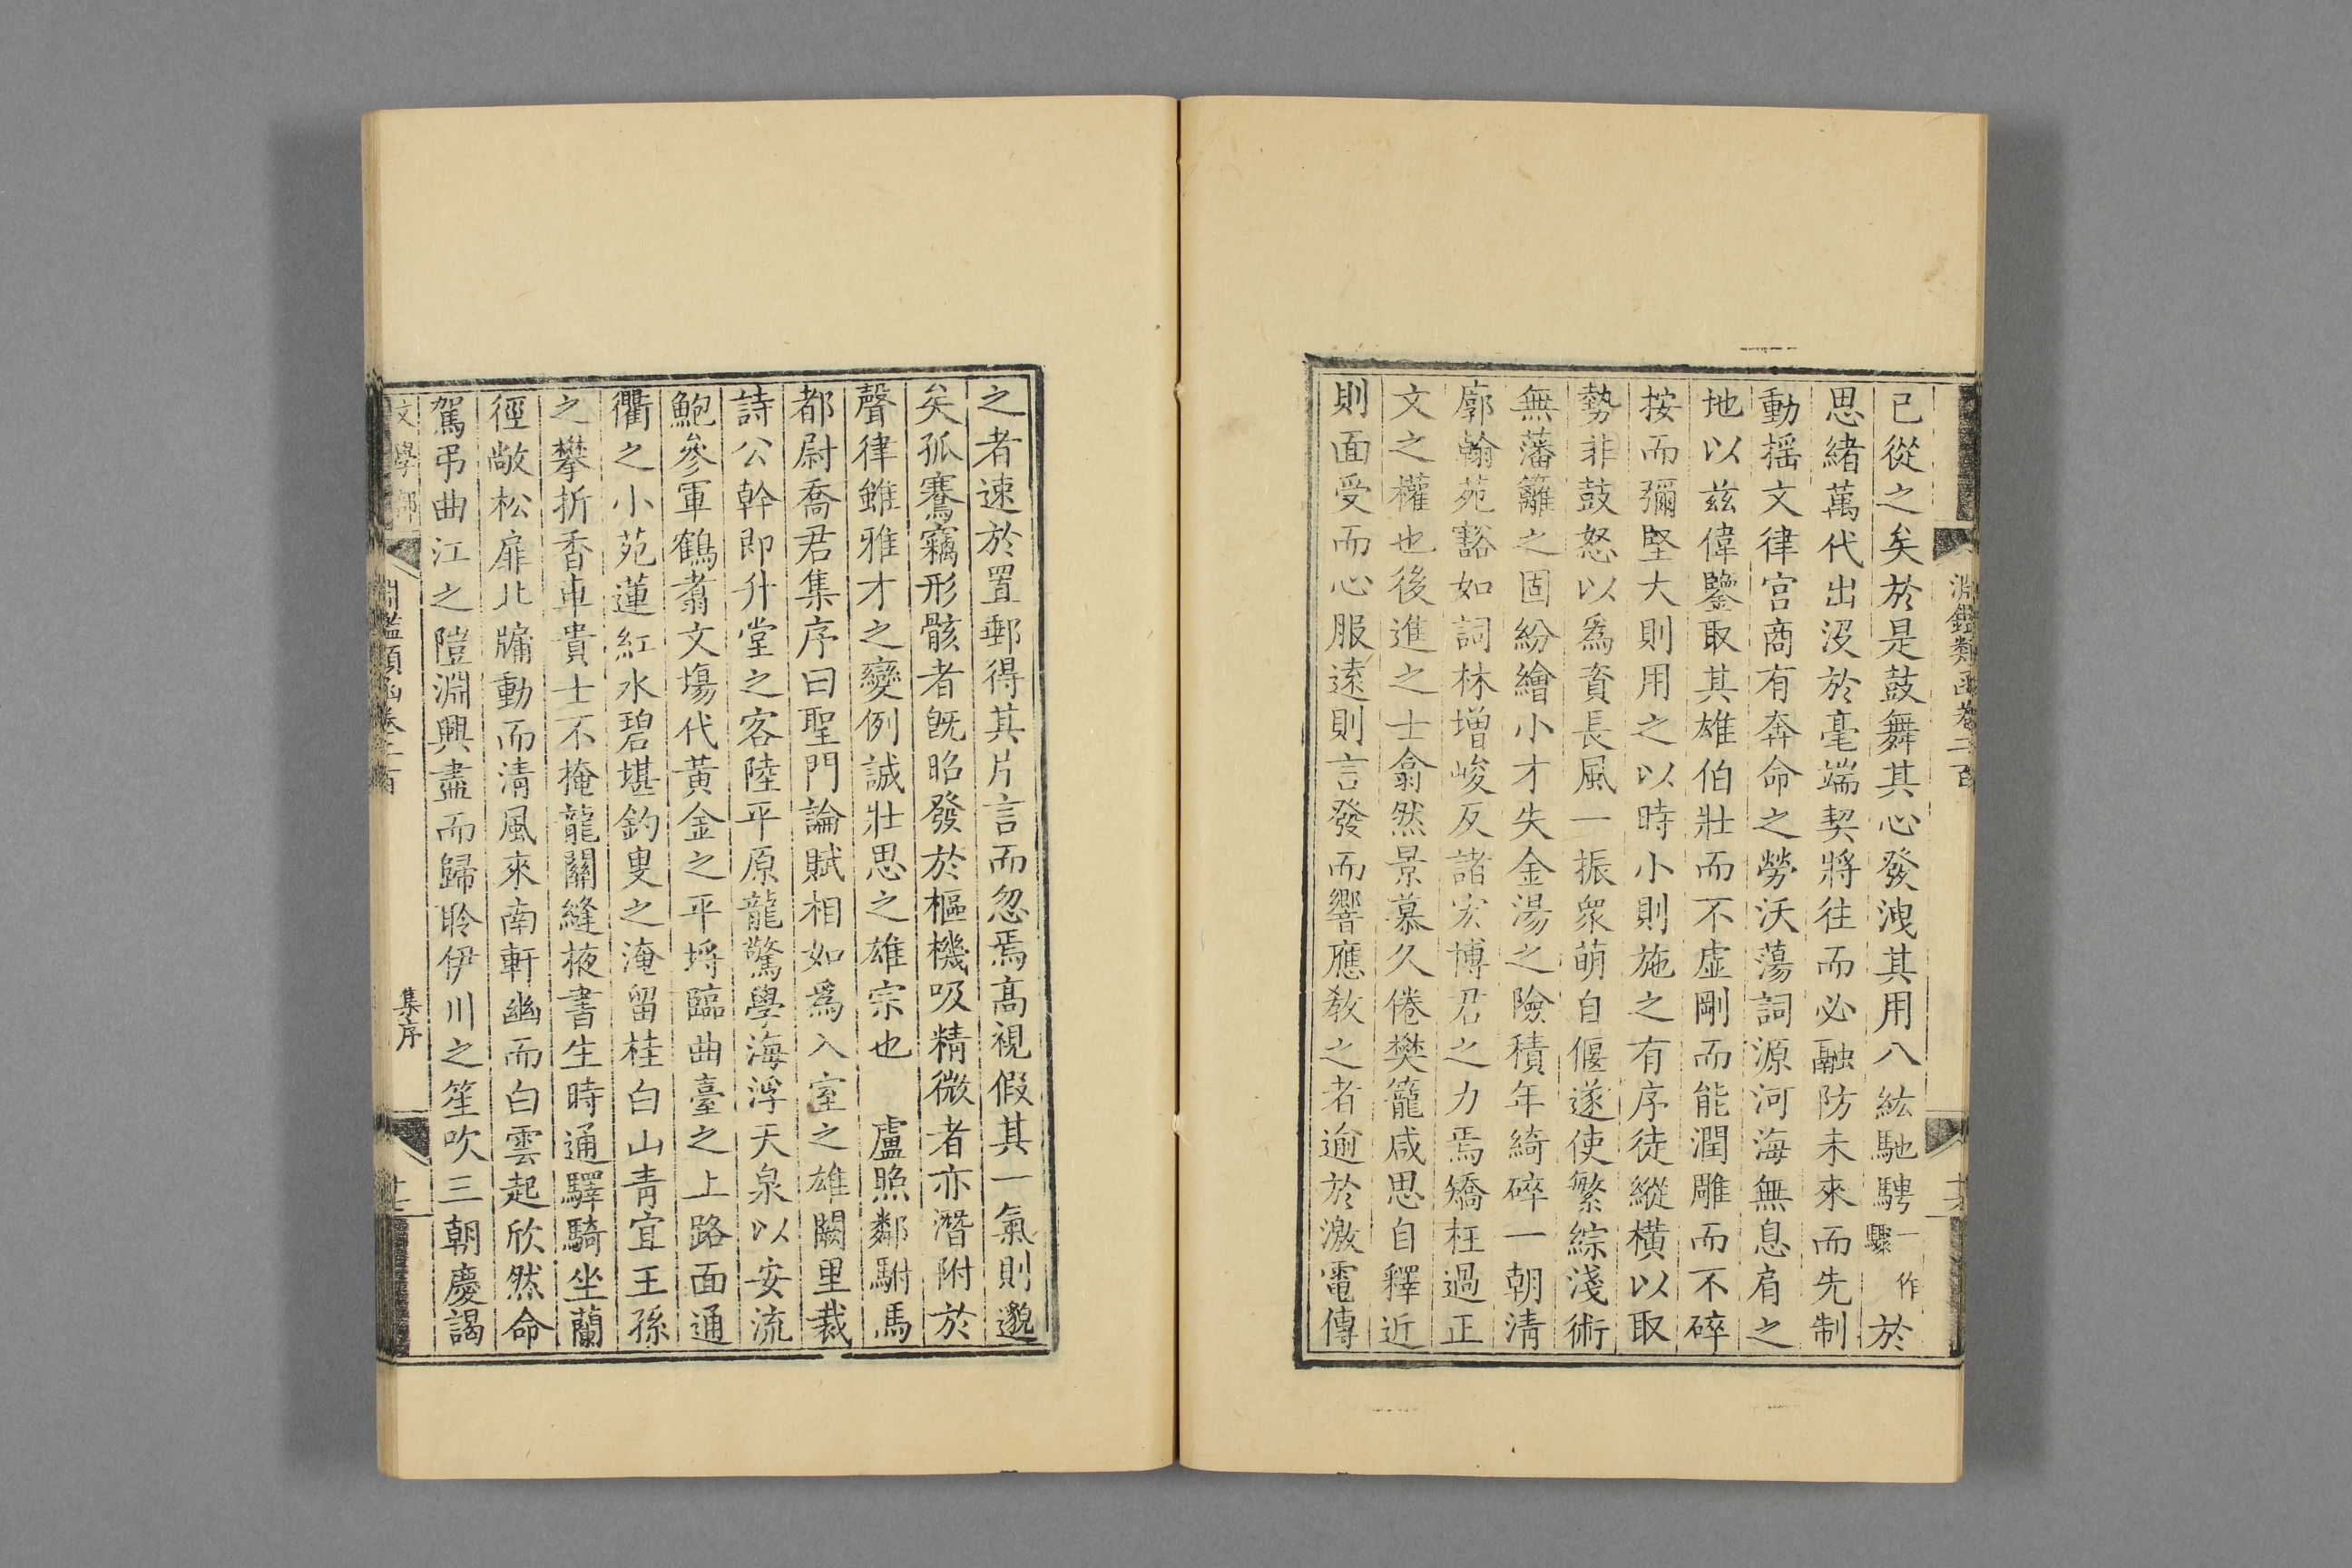 淵鑑類函卷二百
已從之矣於是鼓舞其心發洩其用八紘馳騁一作驟於
思緒萬代出沒於毫端契將往而必融防未來而先制
動揺文律宮商有奔命之勞沃蕩詞源河海無息肩之
地以茲偉鑒取其雄伯壯而不虛剛而能潤雕而不碎
按而彌堅大則用之以時小則施之有序徒縱橫以取
勢非鼓怒以爲資長風一振衆萌自偃遂使繁綜淺術
無藩籬之固紛繪小才失金湯之險積年綺碎一朝清
廓翰苑豁如詞林增峻反諸宏博君之力焉矯枉過正
文之權也後進之士翕然景慕久倦樊籠咸思自釋近
則面受而心服遠則言發而響應敎之者逾於激電傳
之者速於置郵得其片言而忽焉高視假其一氣則邈
矣孤騫竊形骸者旣昭發於樞機吸精微者亦潛附於
聲律雖雅才之變例誠壯思之雄宗也　盧照鄰駙馬
都尉喬君集序曰聖門論賦相如爲入室之雄闕里裁
詩公幹即升堂之客陸平原龍驚學海浮天泉以安流
鮑參軍鶴翥文塲代黃金之平埒臨曲臺之上路面通
衢之小苑蓮紅水碧堪釣叟之淹留桂白山青宜王孫
之攀折香車貴士不掩龍關縫掖書生時通驛騎坐蘭
徑敞松扉北牖動而清風來南軒幽而白雲起欣然命
駕弔曲江之隑淵興盡而歸聆伊川之笙吹三朝慶謁
文學部　淵鑑類函卷二百　集序